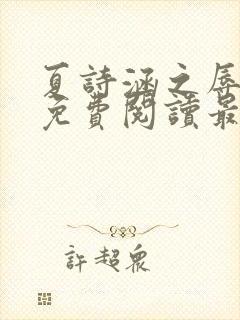 夏詩涵之辱
免費閱讀最
許超眾